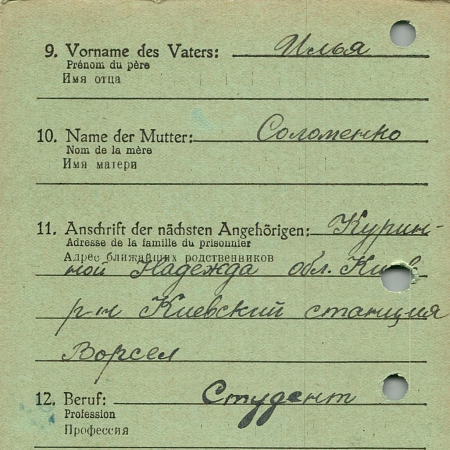 9. Vorname des Vaters: Илья
Prénom du père
Имя отца
10. Name der Mutter: Соломенко
Nom de la mère
Имя матери
11. Anschrift der nächsten Angehörigen: Курин-
Adresse de la famille du prisonnier
Адрес ближайших родственников
ной Надежда обл. Киев
р-н Киевский станция
Ворсел
12. Beruf: Студент
Profession
Профессия